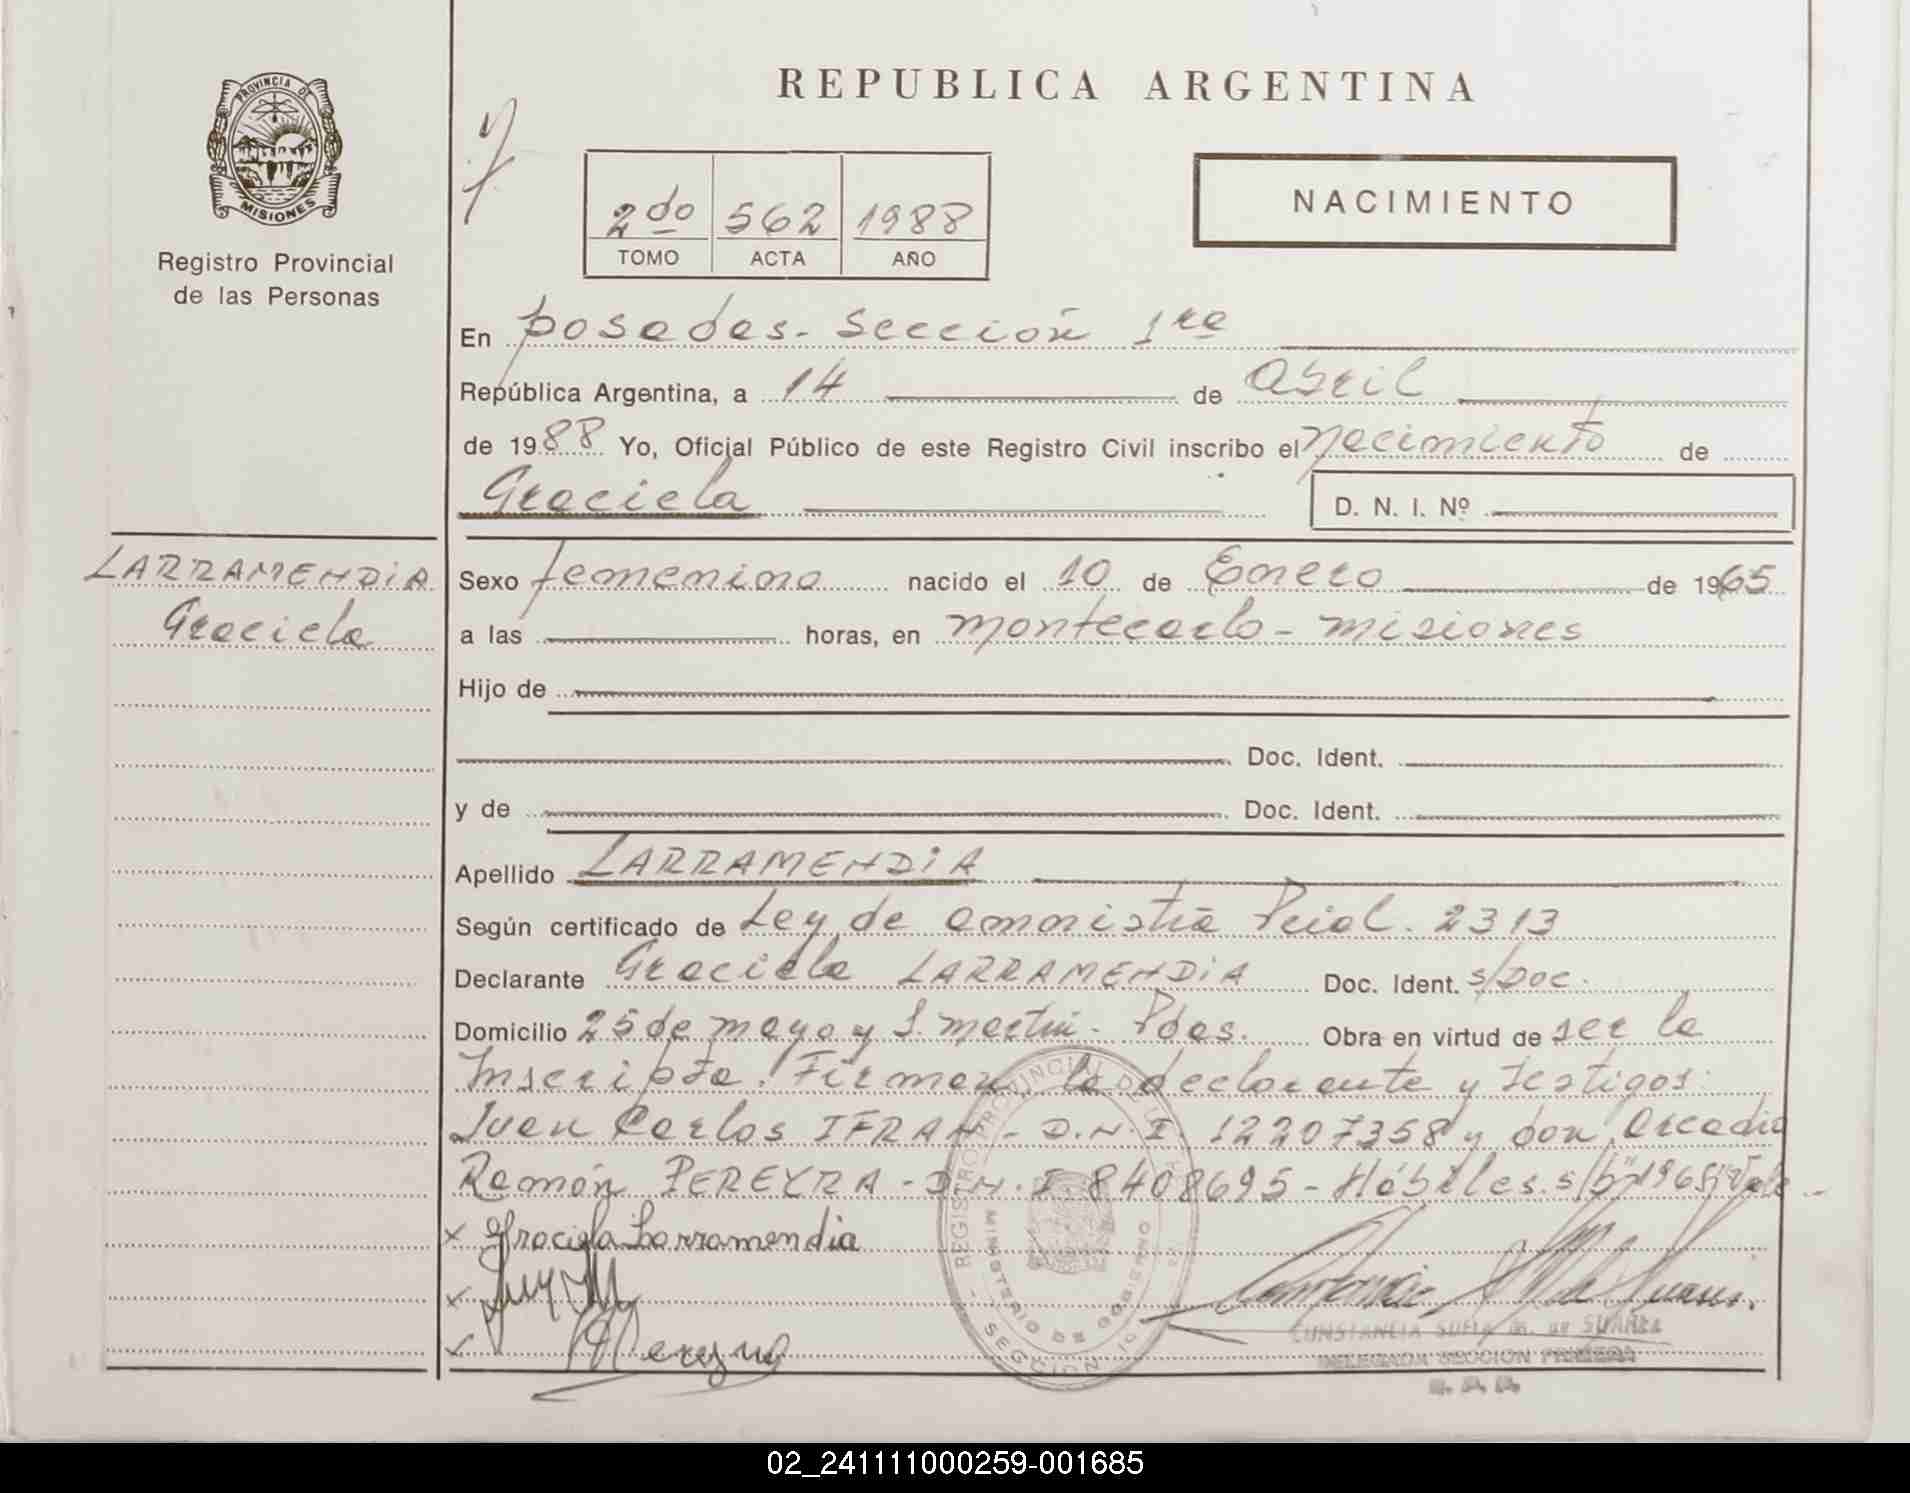 PROVINCIA DE
MISIONES
Registro Provincial
de las Personas
REPUBLICA ARGENTINA
2do 562 1988
TOMO ACTA AÑO
NACIMIENTO
En Posadas - Sección 1ra
República Argentina, a 14 de Abril
de 1988 Yo, Oficial Público de este Registro Civil inscribo el Nacimiento de
Graciela D. N. I. Nº
LARRAMENDIA
Graciela
Sexo femenino nacido el 10 de Enero de 1965
a las horas, en Montecarlo - Misiones
Hijo de
Doc. Ident.
y de Doc. Ident.
Apellido LARRAMENDIA
Según certificado de Ley de amnistía Pcial. 2313
Declarante Graciela LARRAMENDIA Doc. Ident. s/Doc.
Domicilio 25 de mayo y S. Martin - Pdas. Obra en virtud de ser la
Inscripta. Firman la declarante y testigos:
Juan Carlos IFRAN - D.N.I. 12207358 y don Arcadio
Ramón PEREYRA - D.N.I. 8408695 - Hábiles. s/b "1965" Vale
x Graciela Larramendia
x
x Pereyra
REGISTRO PROVINCIAL DE
MINISTERIO DE GOBIERNO
SECCION 1º
CONSTANCIA SOFIA M. de SUAREZ
DELEGADA SECCION PRIMERA